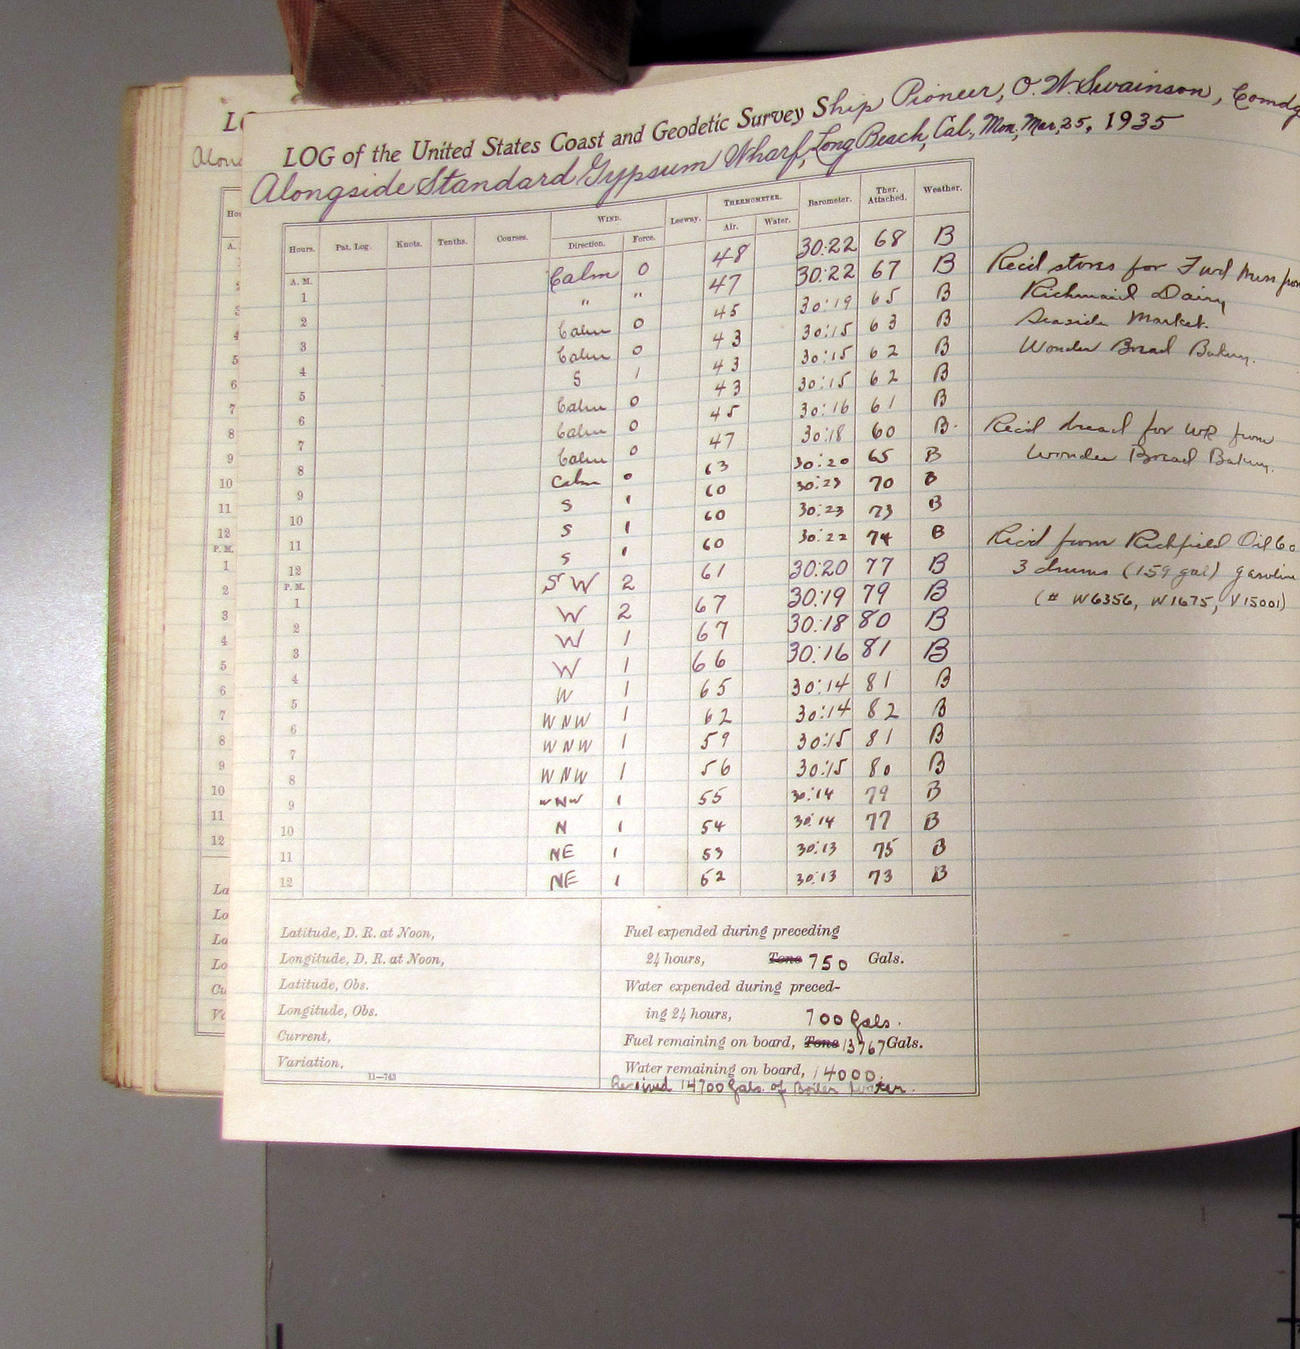 LOG of the United States Coast and Geodetic Survey Ship Pioneer, O. W. Swainson, Comdg
Alongside Standard Gypsum Wharf, Long Beach, Cal., Mon, Mar, 25, 1935
Hours. Pat. Log. Knots. Tenths. Courses. WIND. Direction. Force. Leeway. THERMOMETER. Air. Water. Barometer. Ther. Attached. Weather.
A. M.
1 Calm 0 48 30:22 68 B
2 " " 47 30:22 67 B Rec'd stores for Fwd Mess from
3 Calm 0 45 30:19 65 B Richmaid Dairy
4 Calm 0 43 30:15 63 B Seaside Market.
5 S 1 43 30:15 62 B Wonder Bread Bakery.
6 Calm 0 43 30:15 62 B
7 Calm 0 45 30:16 61 B
8 Calm 0 47 30:18 60 B. Rec'd bread for WR from
9 Calm 0 63 30:20 65 B Wonder Bread Bakery.
10 S 1 60 30:23 70 B
11 S 1 60 30:23 73 B
12 S 1 60 30:22 74 B Rec'd from Richfield Oil Co.
P. M.
1 SW 2 61 30:20 77 B 3 drums (159 gal) gasoline
2 W 2 67 30:19 79 B (# W6356, W1675, V15001)
3 W 1 67 30:18 80 B
4 W 1 66 30:16 81 B
5 W 1 65 30:14 81 B
6 WNW 1 62 30:14 82 B
7 WNW 1 59 30:15 81 B
8 WNW 1 56 30:15 80 B
9 WNW 1 55 30:14 79 B
10 N 1 54 30:14 77 B
11 NE 1 53 30:13 75 B
12 NE 1 52 30:13 73 B
Latitude, D. R. at Noon, Fuel expended during preceding
Longitude, D. R. at Noon, 24 hours, Tons 750 Gals.
Latitude, Obs. Water expended during preced-
Longitude, Obs. ing 24 hours, 700 Gals.
Current, Fuel remaining on board, Tons 13767 Gals.
Variation, Water remaining on board, 14000.
11—743 Received 14700 Gals. of Boiler Water.